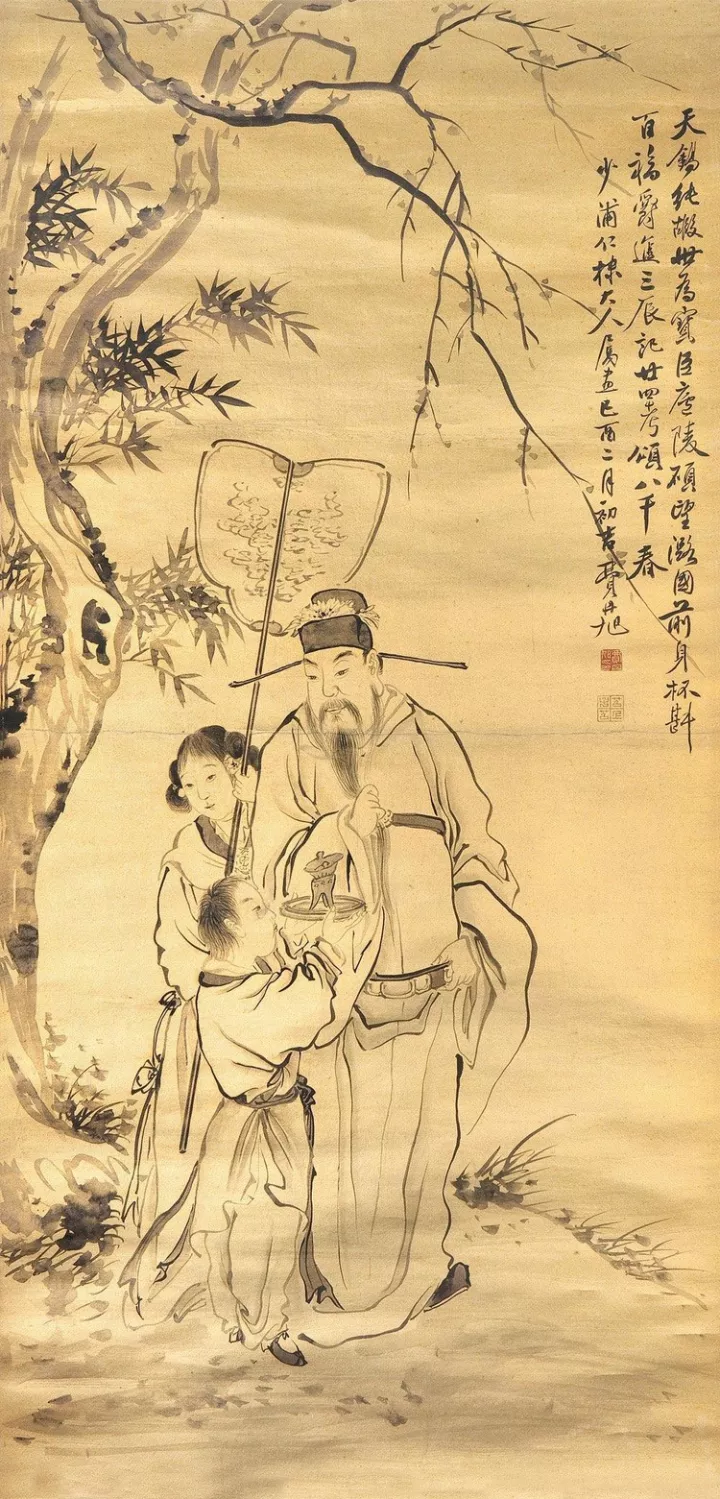 天錫純嘏世為寶臣廬陵碩望潞國前身杯斟
百福爵進三辰記廿四考頌八千春
少浦仁棣大人属畫己酉二月初吉費丹旭